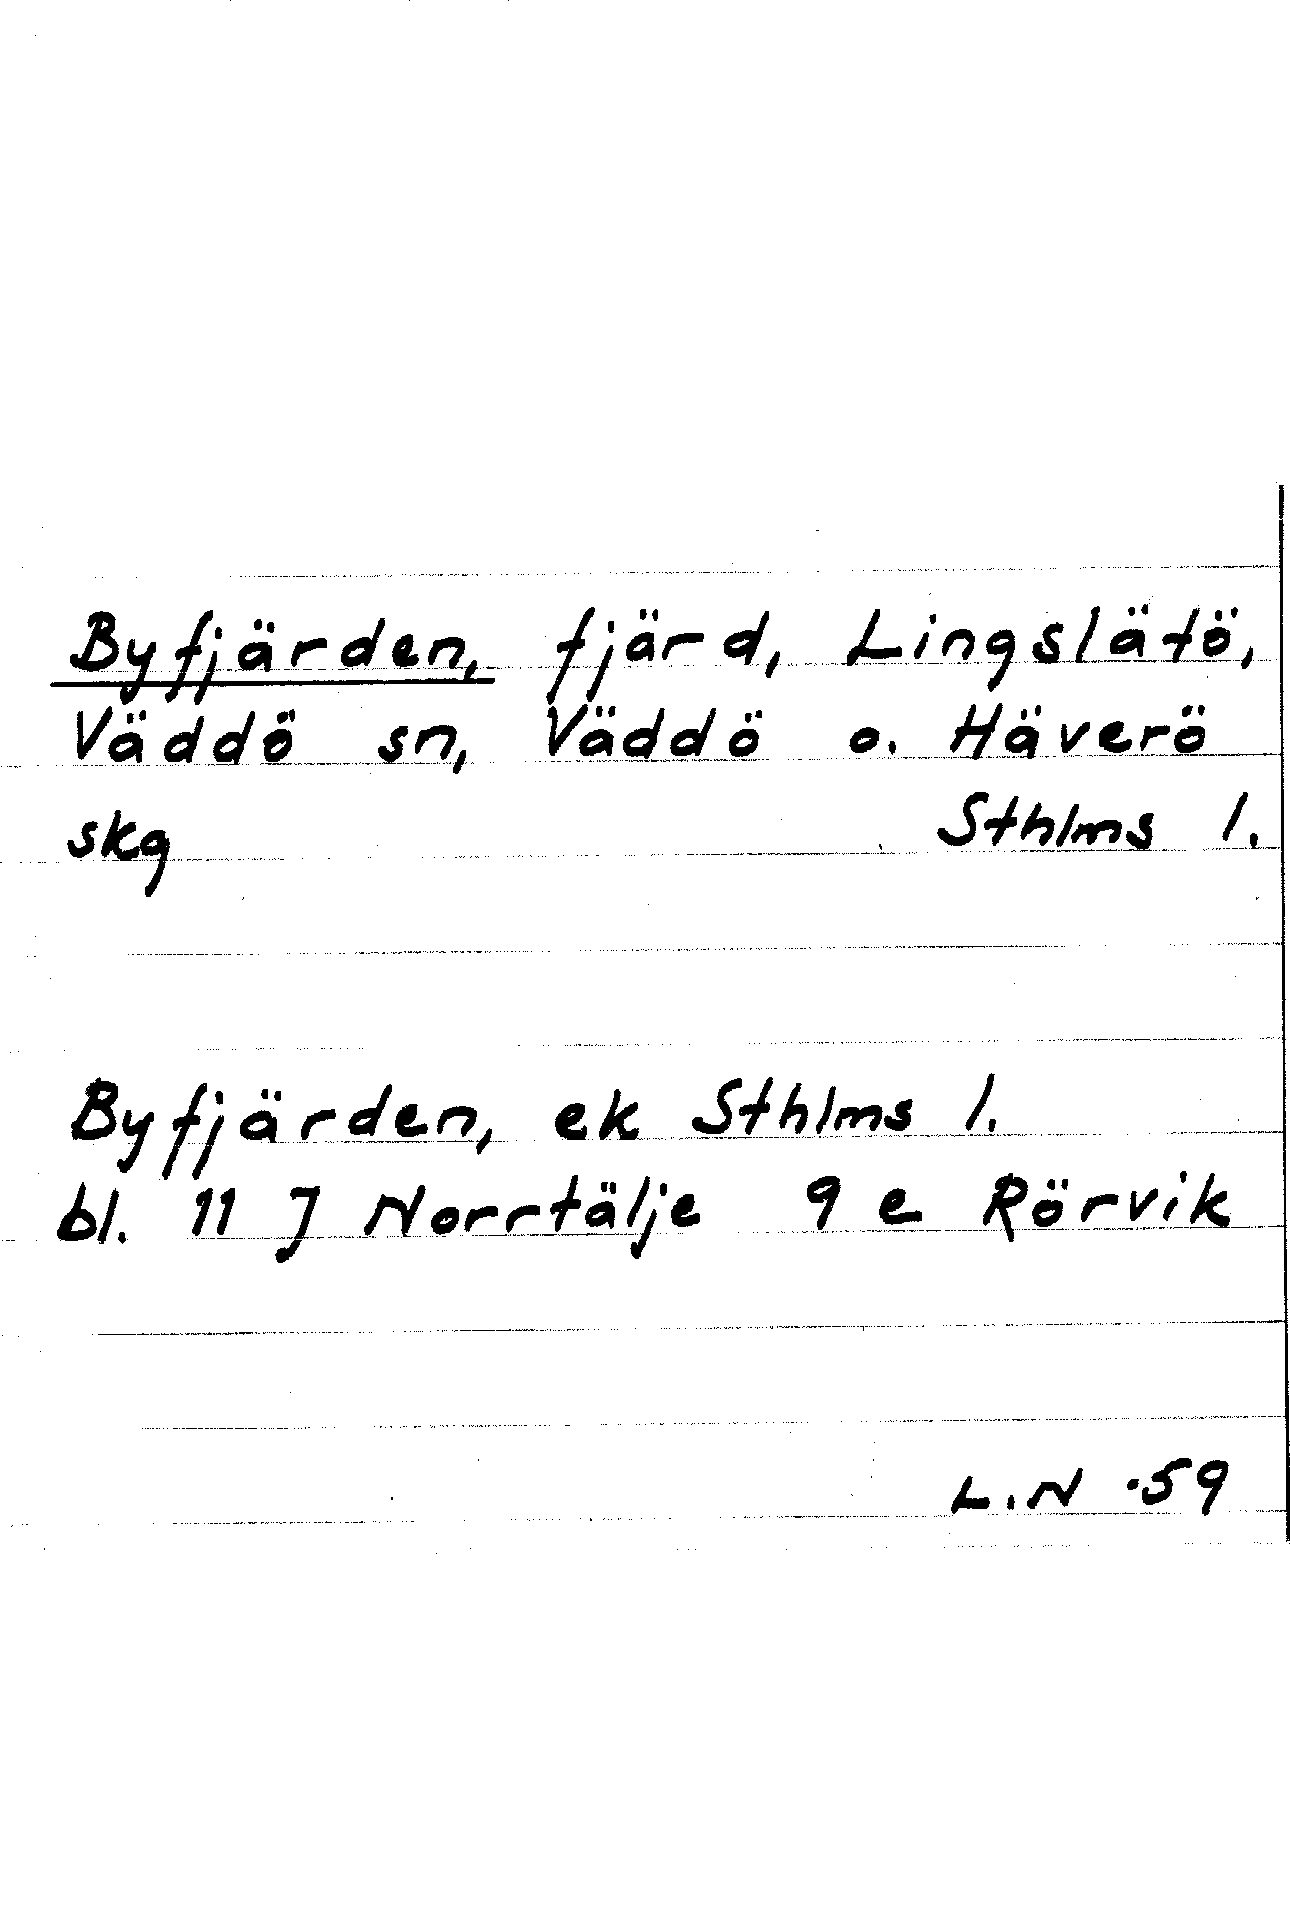 Byfjärden, fjärd, Lingslätö,
Väddö sn, Väddö o. Häverö
skg Sthlms l.
Byfjärden, ek Sthlms l.
bl. 11 J Norrtälje 9 e Rörvik
L.N ·59